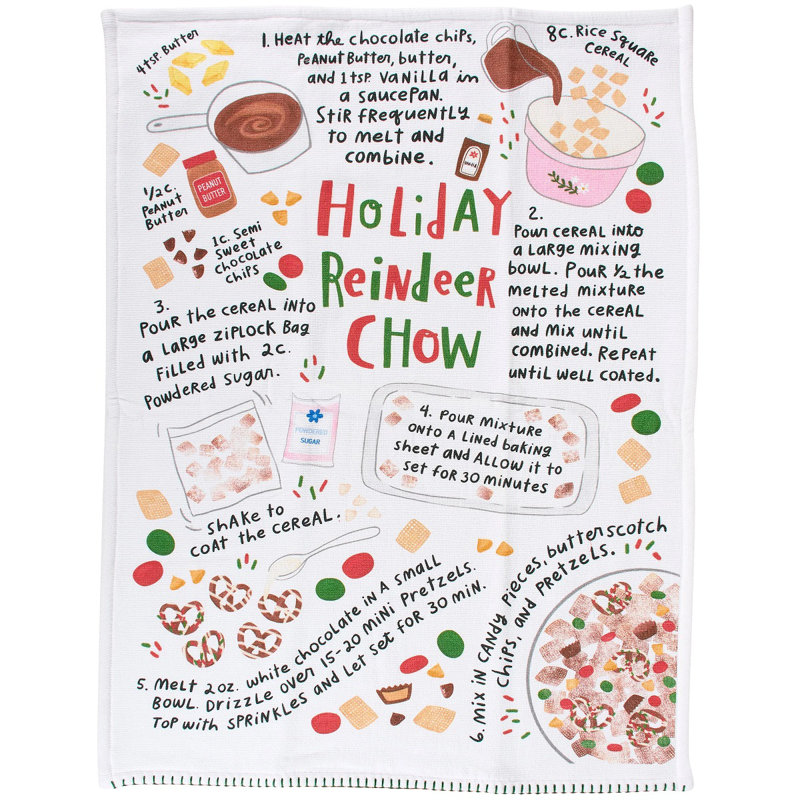 4 tsp. Butter
1. Heat the chocolate chips,
Peanut Butter, butter,
and 1 tsp. vanilla in
a saucepan.
Stir frequently
to melt and
combine.
8c. Rice Square
Cereal
1/2 c.
Peanut
Butter
PEANUT
BUTTER
1c. Semi
Sweet
Chocolate
chips
Holiday
Reindeer
Chow
2.
Pour cereal into
a large mixing
bowl. Pour 1/2 the
melted mixture
onto the cereal
and mix until
combined. Repeat
until well coated.
3.
Pour the cereal into
a large ziplock Bag
filled with 2c.
Powdered Sugar.
POWDERED
SUGAR
4. Pour mixture
onto a lined baking
sheet and allow it to
set for 30 minutes
Shake to
coat the cereal.
5. Melt 2 oz. white chocolate in a small
bowl. Drizzle over 15-20 mini pretzels.
Top with sprinkles and let set for 30 min.
6. Mix in candy pieces, butterscotch
chips, and pretzels.